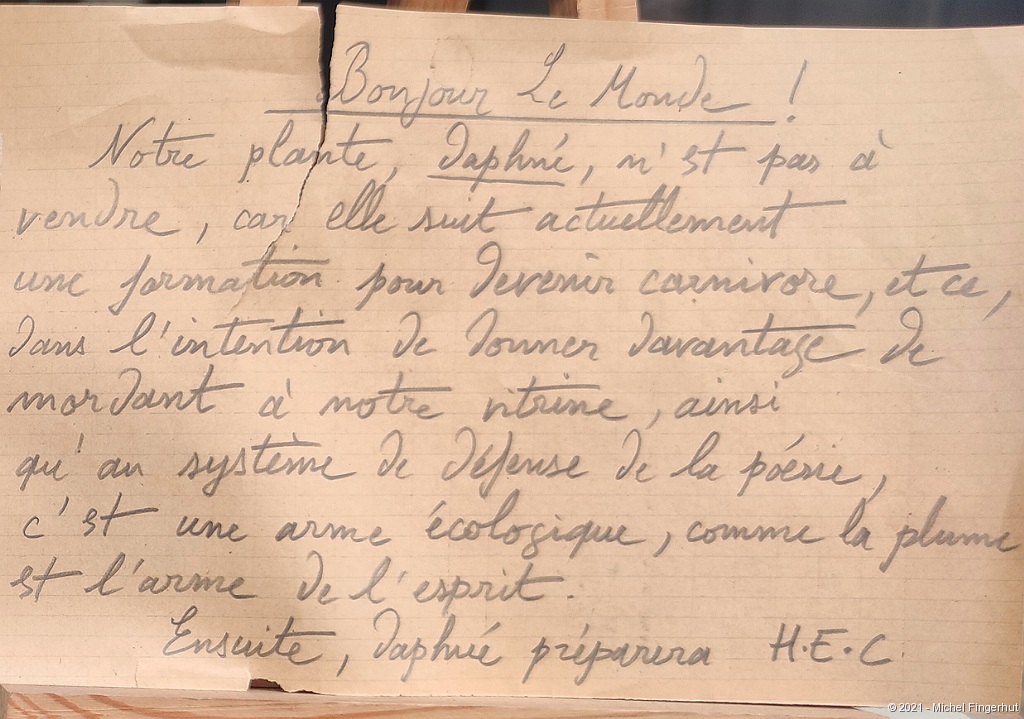 Bonjour Le Monde !
Notre plante, daphné, n'est pas à
vendre, car elle suit actuellement
une formation pour devenir carnivore, et ce,
dans l'intention de donner davantage de
mordant à notre vitrine, ainsi
qu'au système de défense de la poésie,
c'est une arme écologique, comme la plume
est l'arme de l'esprit.
Ensuite, daphnée préparera H.E.C.
© 2021 - Michel Fingerhut